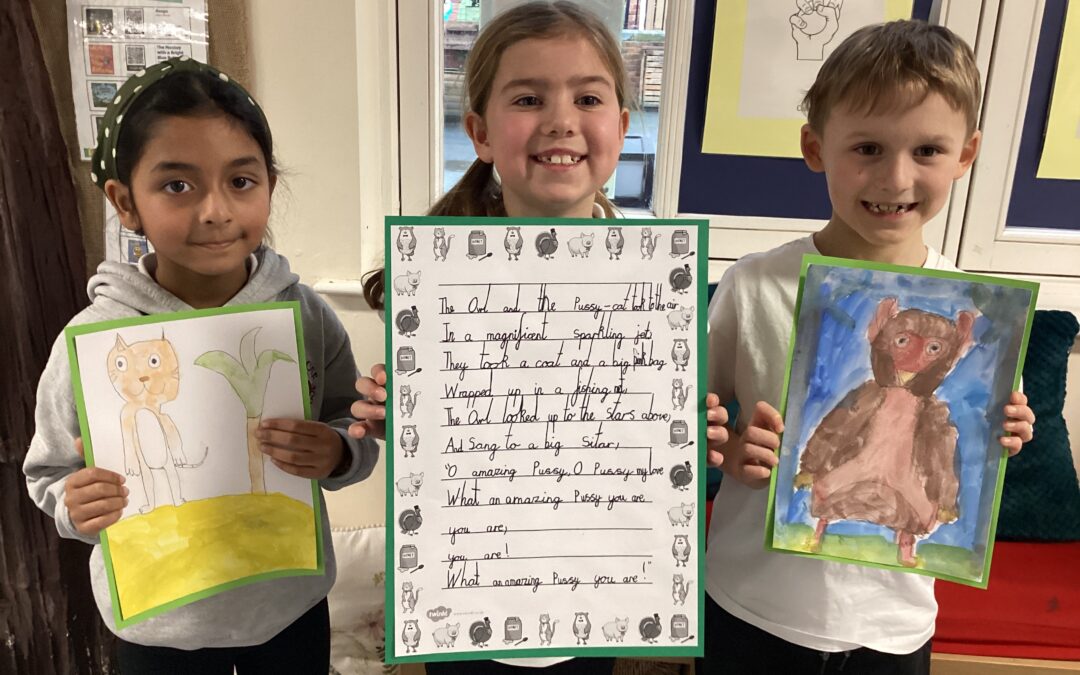 The Monkey
with a Bright
The Owl and the Pussy-cat took to the air
In a magnificent sparkling jet,
They took a coat and a big pink bag
Wrapped up in a fishing net,
The Owl looked up to the Stars above,
And Sang to a big Sitar,
"O amazing Pussy, O Pussy my love
What an amazing Pussy you are
you are,
you are!
What an amazing Pussy you are!"
twinkl
HONEY